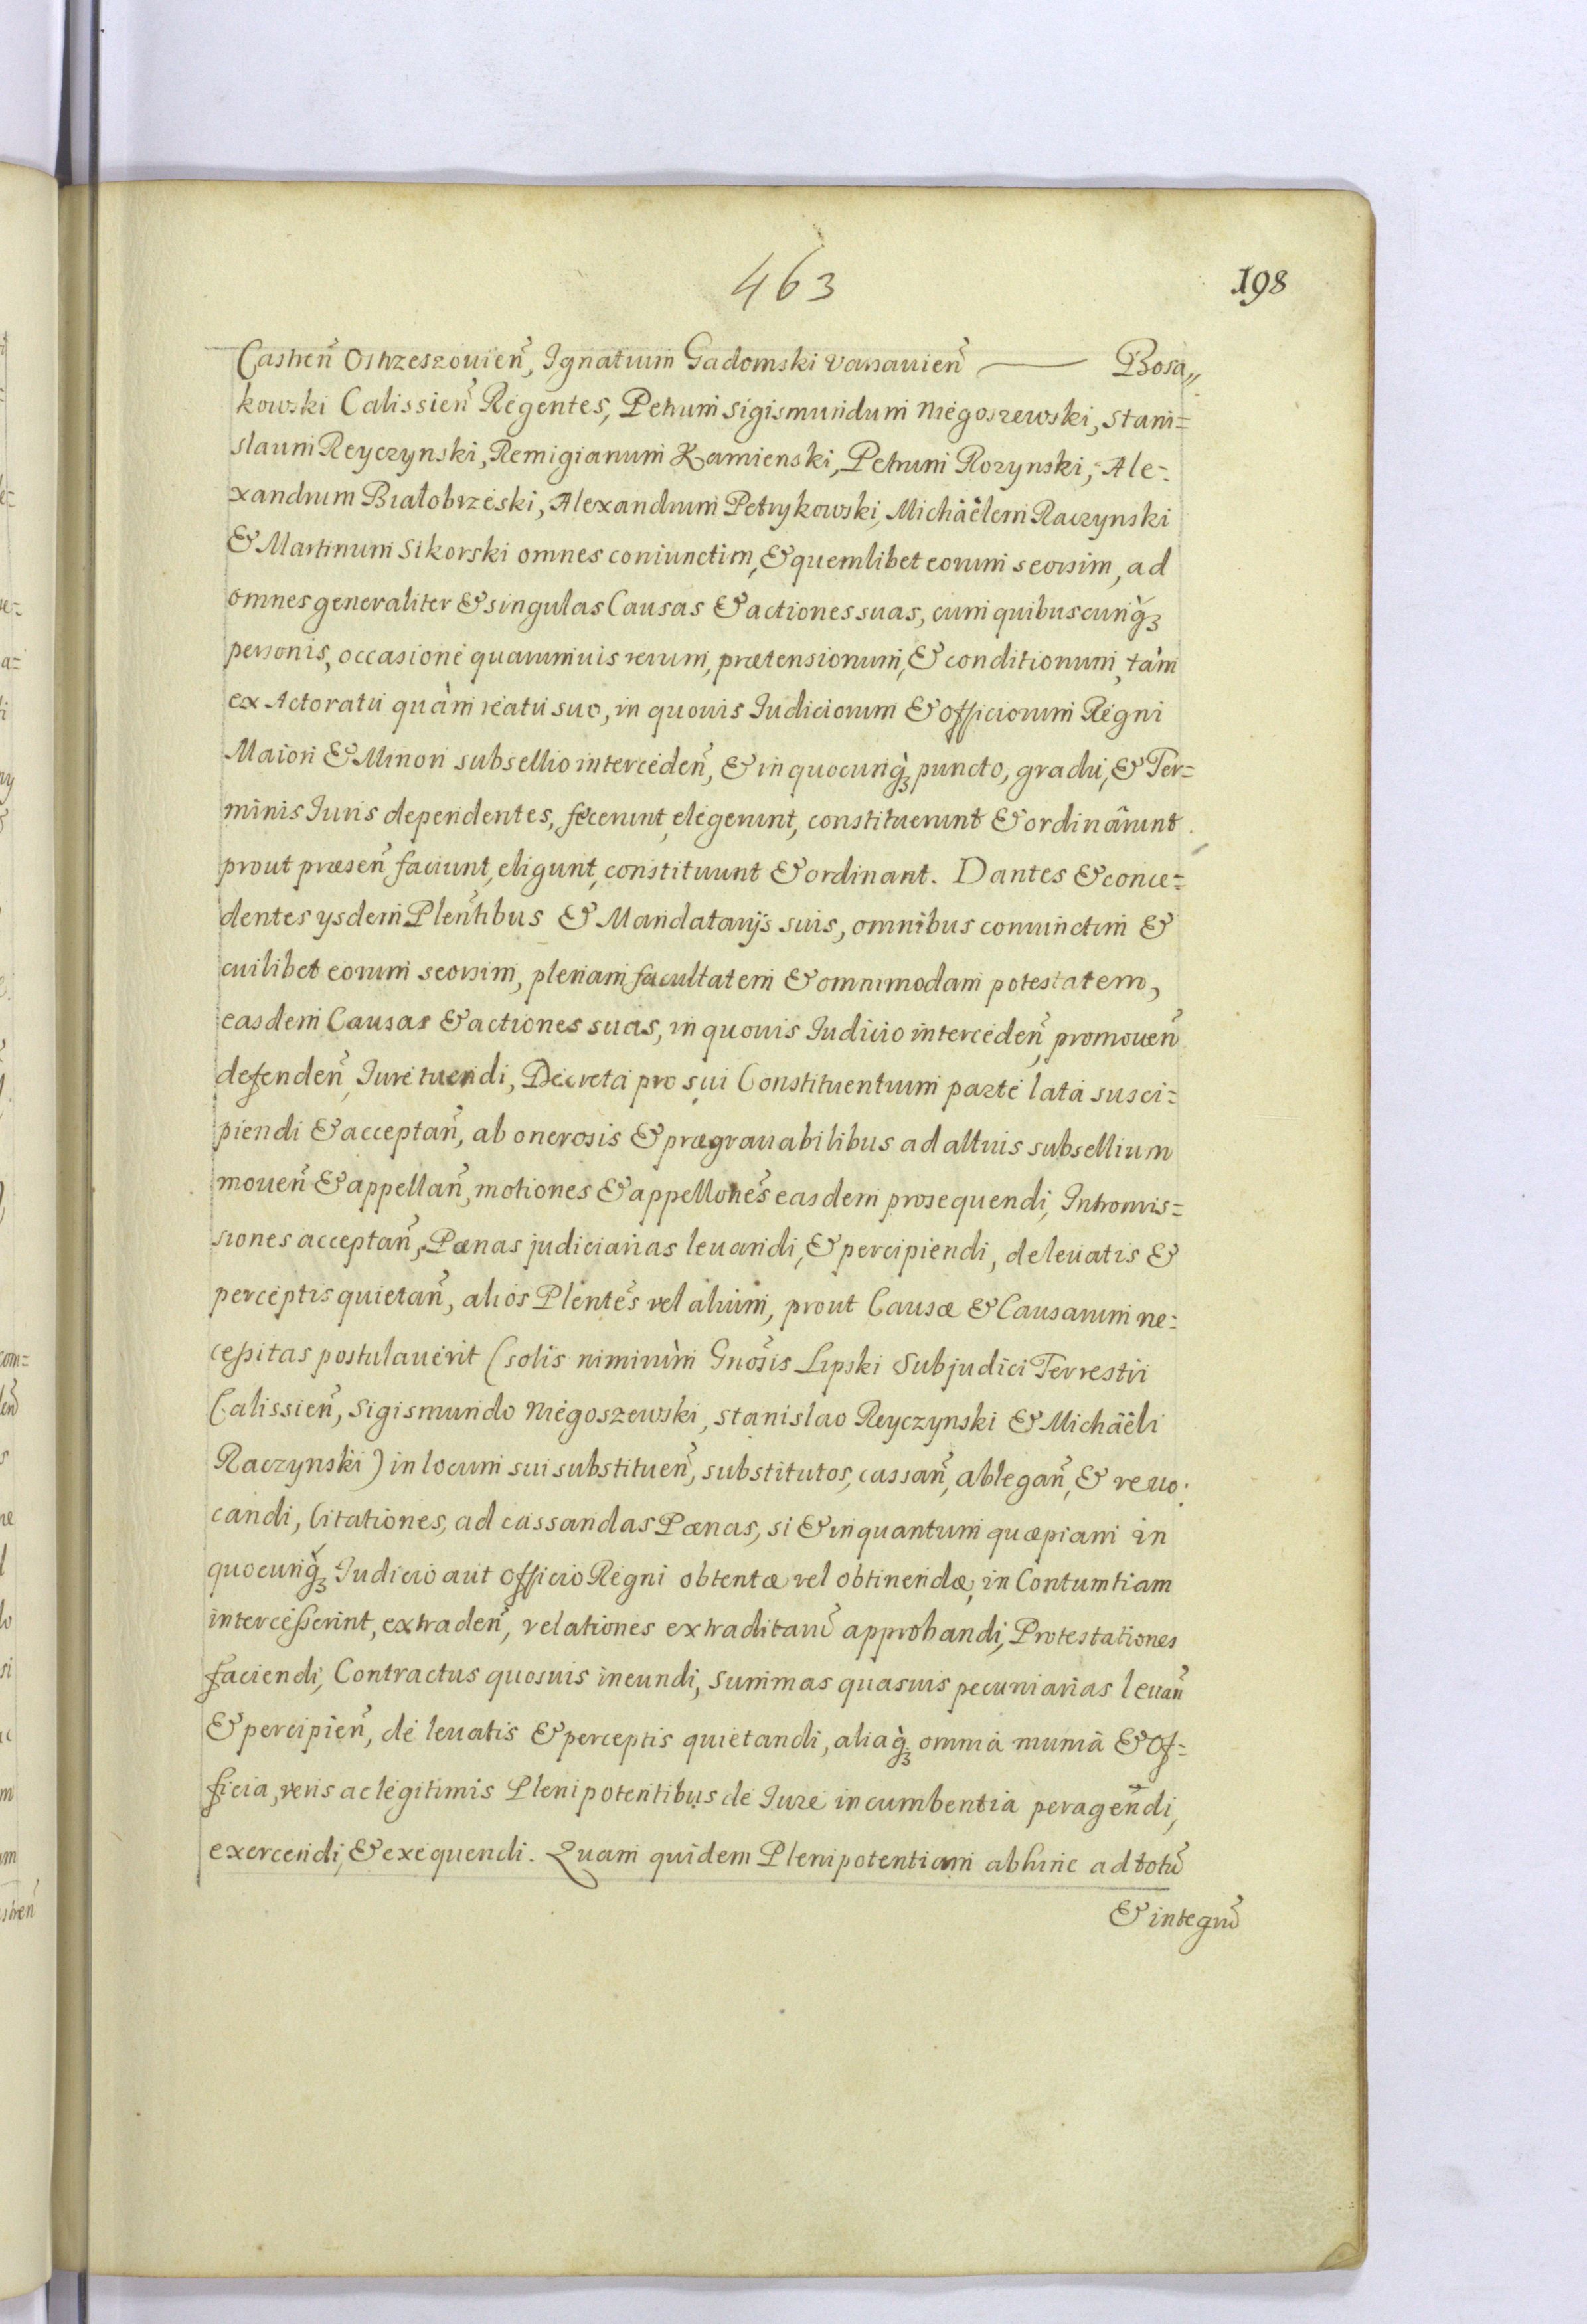 463
198
Castren̄ Ostrzeszouien̄, Ignatium Gadomski Varsauien̄ —— Bosa„
kowski Calissien̄ Regentes, Petrum Sigismundum Niegoszewski, Stani=
slaum Reyczynski, Remigianum Kamienski, Petrum Rozynski, Ale=
xandrum Białobrzeski, Alexandrum Petrykowski, Michäêlem Raczynski
& Martinum Sikorski omnes coniunctim, & quemlibet eorum seorsim, ad
omnes generaliter & singulas Causas & actiones suas, cum quibuscunq̀ꝫ
personis, occasione quarumuis rerum, prætensionum, & conditionum, tàm
ex Actoratu quàm reatu suo, in quouis Iudiciorum & Officiorum Regni
Maiori & Minori subsellio interceden̄, & in quocunq̀ꝫ puncto, gradu, & Ter=
minis Iuris dependentes, fecerunt, elegerunt, constituerunt & ordinârunt
prout præsen̄ faciunt, eligunt, constituunt & ordinant. Dantes & conce=
dentes ysdem Plen̄tibus & Mandatarijs suis, omnibus coniunctim &
cuilibet eorum seorsim, plenam facultatem & omnimodam potestatem,
easdem Causas & actiones suas, in quouis Iudicio interceden̄, promouen̄
defenden̄, Iure tuendi, Decreta pro sui Constituentium parte lata susci=
piendi & acceptan̄, ab onerosis & prægrauabilibus ad altius subsellium
mouen̄ & appellan̄, motiones & appellones̄ easdem prosequendi, Intromis=
siones acceptan̄, Pœnas judiciarias leuandi, & percipiendi, de leuatis &
perceptis quietan̄, alios Plentes̄ vel alium, prout Causæ & Causarum ne=
ceßitas postulauerit (solis nimirùm Gnosis̄ Lipski Subjudici Terrestri
Calissien̄, Sigismundo Niegoszewski, Stanislao Reyczynski & Michäêli
Raczynski) in locum sui substituen̄, substitutos, cassan̄, ablegan̄, & reuo=
candi, Citationes, ad cassandas Pœnas, si & inquantum quæpiam in
quocunq̀ꝫ Iudicio aut Officio Regni obtentæ vel obtinendæ, in Contumtiam
interceßerint, extraden̄, relationes extraditarū approbandi, Protestationes
faciendi, Contractus quosuis ineundi, Summas quasuis pecuniarias leuan̄
& percipien̄, de leuatis & perceptis quietandi, aliaq̀ꝫ omnia munia & Of=
ficia, veris ac legitimis Plenipotentibus de Iure incumbentia peragendi,
exercendi, & exequendi. Quam quidem Plenipotentiam abhinc ad totū
& integrū